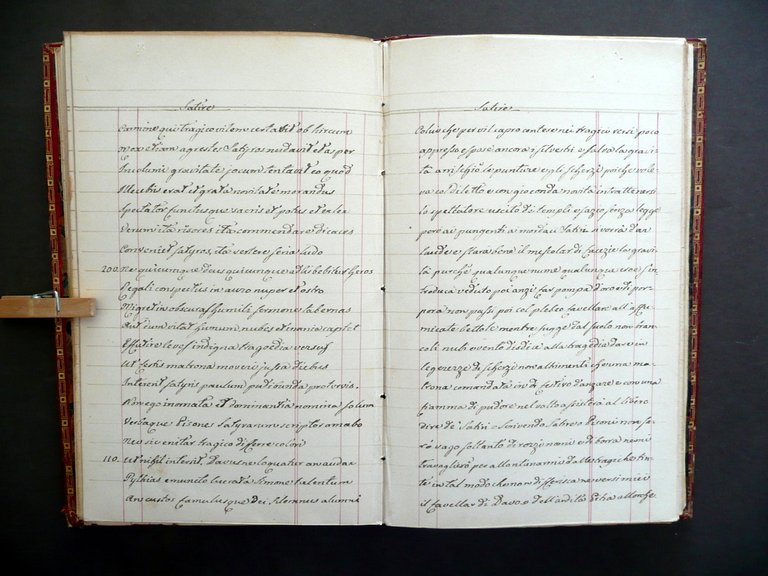 Satire
Carmine qui tragico vilem certavit ob hircum
mox etiam agrestes Satyros nudavit et asper
Incolumi gravitate jocum tentavit eo quod
Illecebris erat et grata novitate morandus
Spectator functusque sacris et potus et exlex
Verum ita risores ita commendare dicaces
Conveniet satyros, ita vertere seria ludo
200. Ne quicumque deus quicumque adhibebitur heros
Regali conspectus in auro nuper et ostro
Migret in obscuras humili sermone tabernas
Aut dum vitat humum nubes et inania captet
Effutire leves indigna tragoedia versus
Ut festis matrona moveri jussa diebus
Intererit satyris paulum pudibunda protervis.
Non ego inornata et dominantia nomina solum
Verbaque Pisones satyrarum scriptor amabo
Nec sic enitar tragico differre colori
110. Ut nihil intersit Davusne loquatur an audax
Pythias emuncto lucrata Simone talentum
An custos famulusque Dei Silenus alumni
Satire
Colui che per vil capro contese nei tragici versi poco
appresso espose ancora i silvestri e salva la gravi
tà arrischiò le punture e gli scherzi poichè vole
va col diletto e con gioconda novità intrattenersi
lo spettatore uscito di templi e sazio senza legge
però ai pungenti e mordaci Satiri si vorrà dar
laude e starà bene il mescolar di facezie la gravi
tà purchè qualunque nume qualunque eroe s'in
troduca veduto poi anzi far pompa d'oro e di por
pora non passi poi col plebeo favellare all'affu
micate bettole mentre fugge dal suolo non bran
coli nubi e vento disdice alla tragedia dare in
legerezze di scherzi non altrimenti che una ma
trona comandata in dì festivo danzare e con una
fiamma di pudore nel volto assisterà al libero
dire de' Satiri. Scrivendo Satire o Pisoni non sa
rò vago soltanto di rozzi nomi e di borra nè mi
travaglierò per allontanarmi dalle tragiche tin
te in tal modo che non differesca ne versi miei
il favellar di Davo o dell'ardita Pitia allorchè